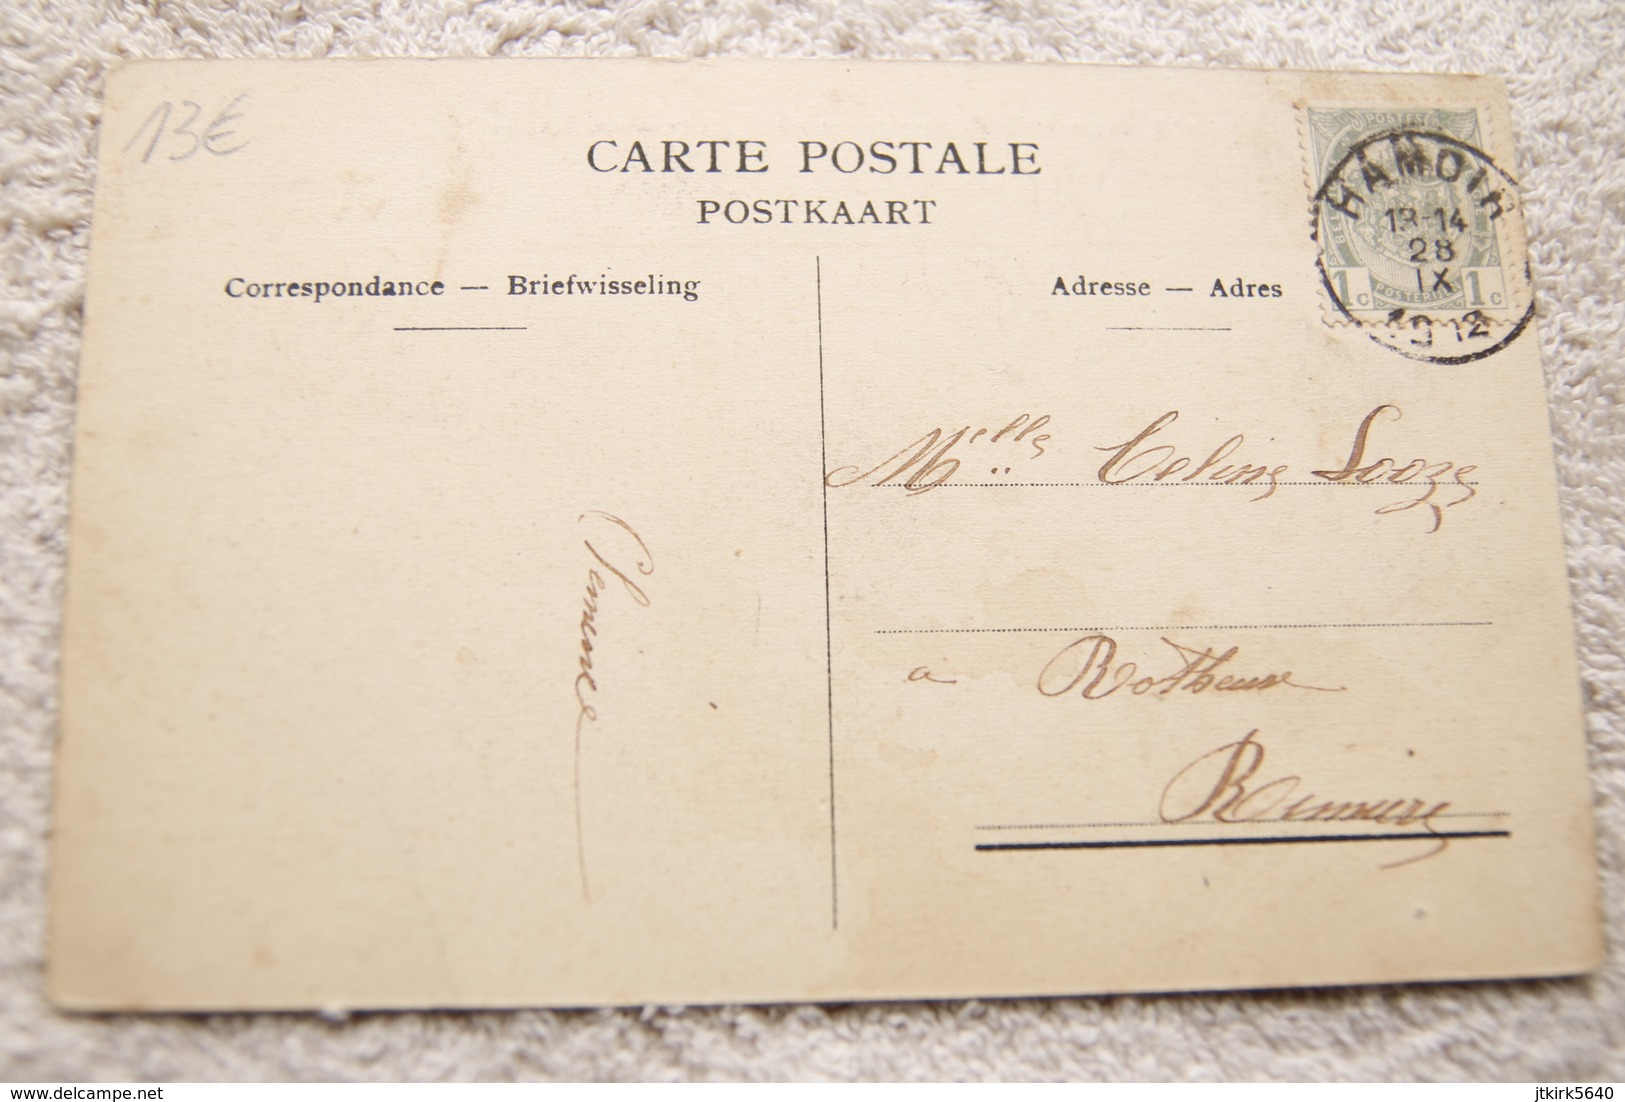 13€
CARTE POSTALE
POSTKAART
Correspondance — Briefwisseling
Adresse — Adres
POSTES
HAMOIR
13-14
28
IX
1912
1c
1c
Melle Celine Looze
à Rotheuse
Rimière
delcampe.net
jtkirk5640